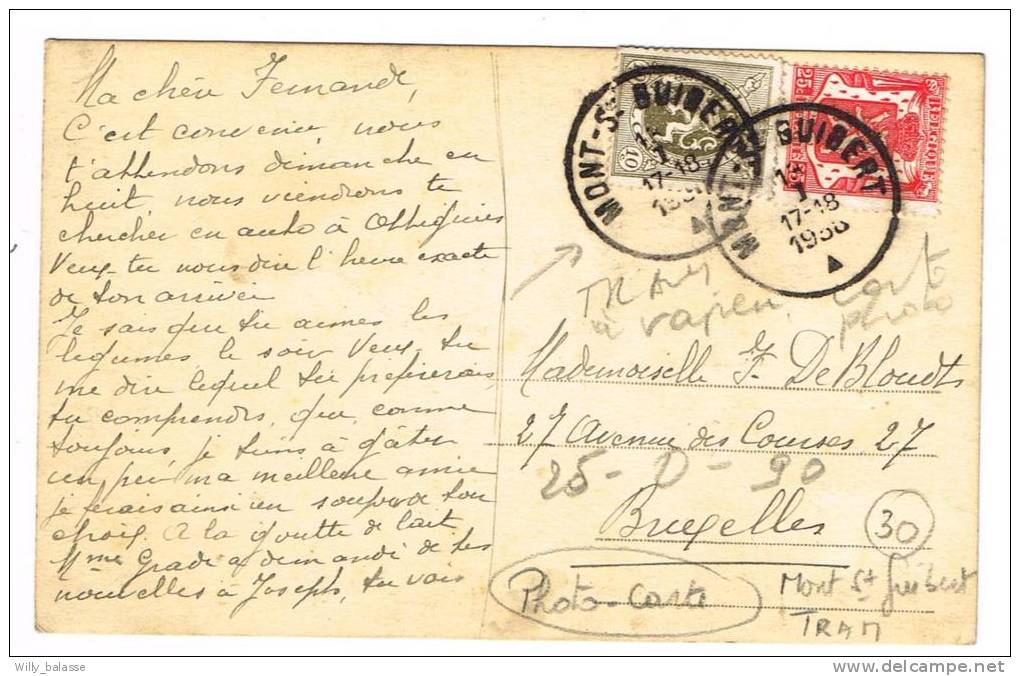 Ma chère Fernande,
C'est convenu, nous
t'attendons dimanche en
huit nous viendrons te
chercher en auto à Ottignies
Veux-tu nous dire l'heure exacte
de ton arrivée
Je sais que tu aimes les
légumes le soir Veux-tu
me dire lequel tu préfèrerais,
tu comprends, que comme
toujours, je tiens à gâter
un peu ma meilleure amie
je ferais ainsi un souper de ton
choix. A la goutte de lait
Mme Grade a demandé de tes
nouvelles à Joseph, tu vois
MONT-St GUIBERT
17-18
193
MONT-St GUIBERT
17-18
1938
10
25c
BELGIQUE
TRAM
à vapeur
cart
photo
Mademoiselle F. De Bloudts
27 Avenue des Courses 27
25- D - 90
Bruxelles
30
Photo-carte
Mont St Guibert
TRAM
Willy_balasse
www.delcampe.net